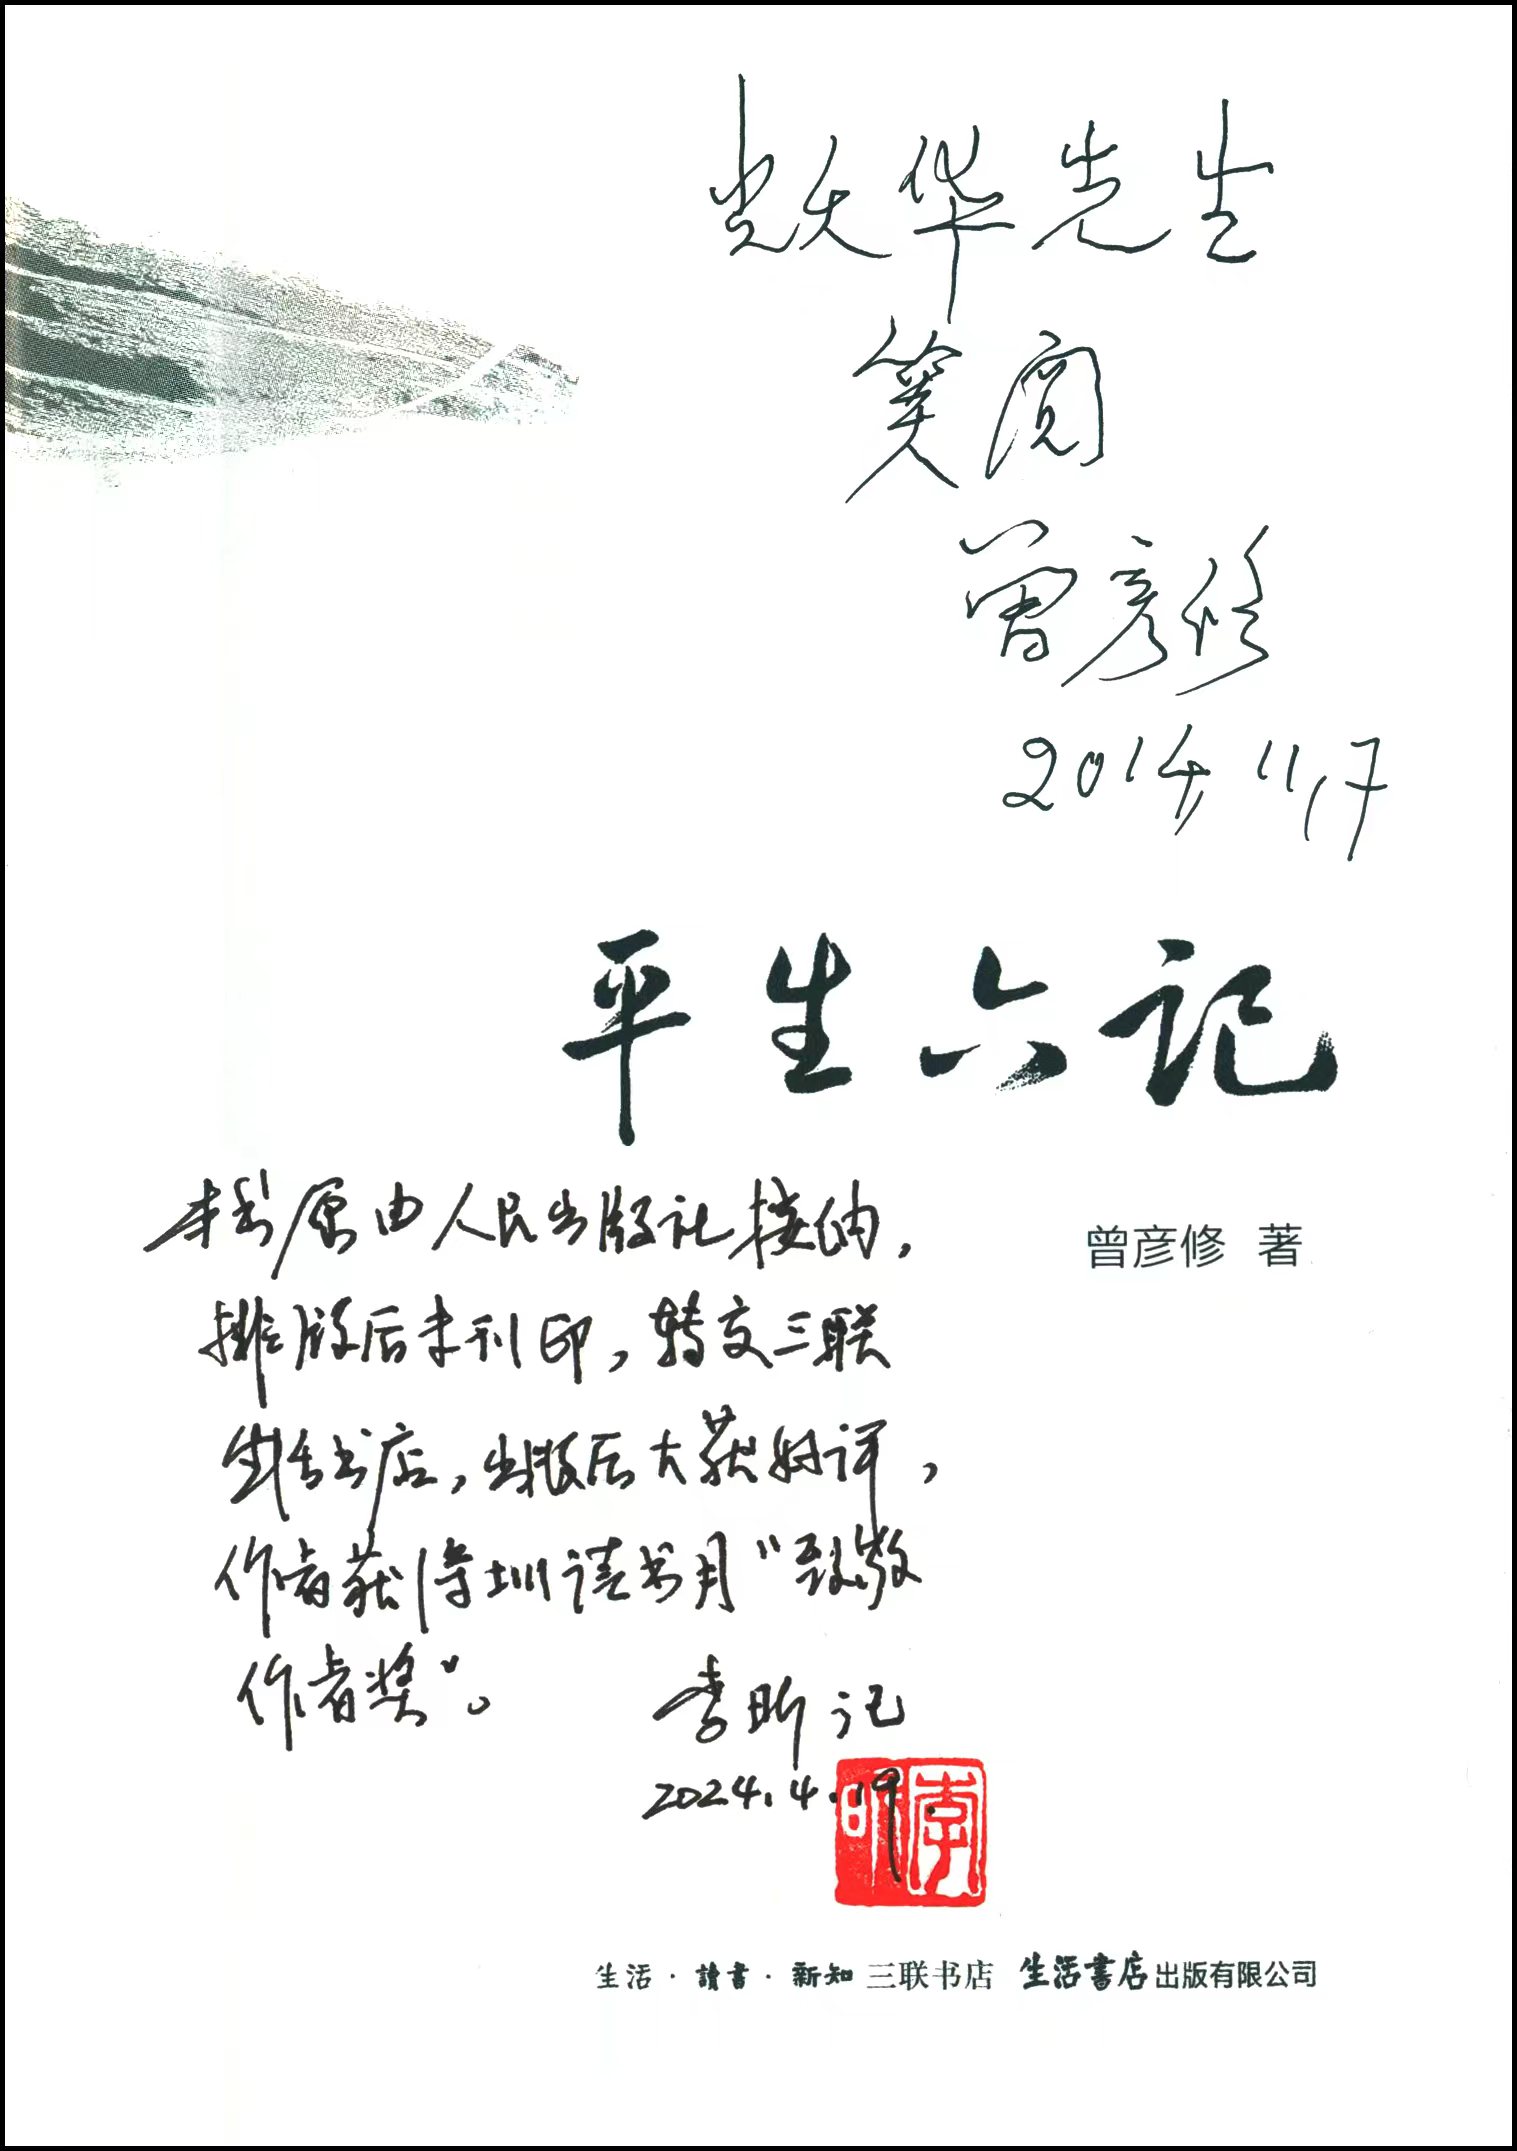 耀华先生
笑阅
曾彦修
2014, 11, 7
平生六记
曾彦修 著
本书原由人民出版社接納,
排版后未刊印,转交三联
生活书店,出版后大获好评,
作者获深圳读书月“致敬
作者奖”。
李昕记
2024.4.19.
李昕
生活·讀書·新知 三联书店 生活書店出版有限公司